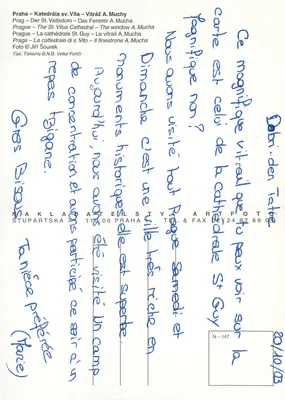 Praha – Katedrála sv. Víta – Vitráž A. Muchy
Prag – Der St. Veitsdom – Das Fenster A. Mucha
Prague – The St. Vitus Cathedral – The window A. Mucha
Prague – La cathédrale St. Guy – Le vitrail A. Mucha
Praga – La cattedrale di s. Vito – Il finestrone A. Mucha
Foto © Jiří Šourek
Tisk: Tiskárny B.N.B. Velké Poříčí
NAKLADATELSTVÍ ART FOTO
N – 147
20/10/03
Dobri-den Tatie
Ce magnifique vitrail que tu peux voir sur la
carte est celui de la cathédrale St Guy
Magnifique non?
Nous avons visité tout Prague samedi et
Dimanche c'est une ville très riche en
monuments historiques elle est superbe.
Aujourd'hui, nous avons été visité un camp
de concentration et avons participé ce soir à un
repas tzigane.
Gros Bisous
Ta nièce préférée
(Marie)